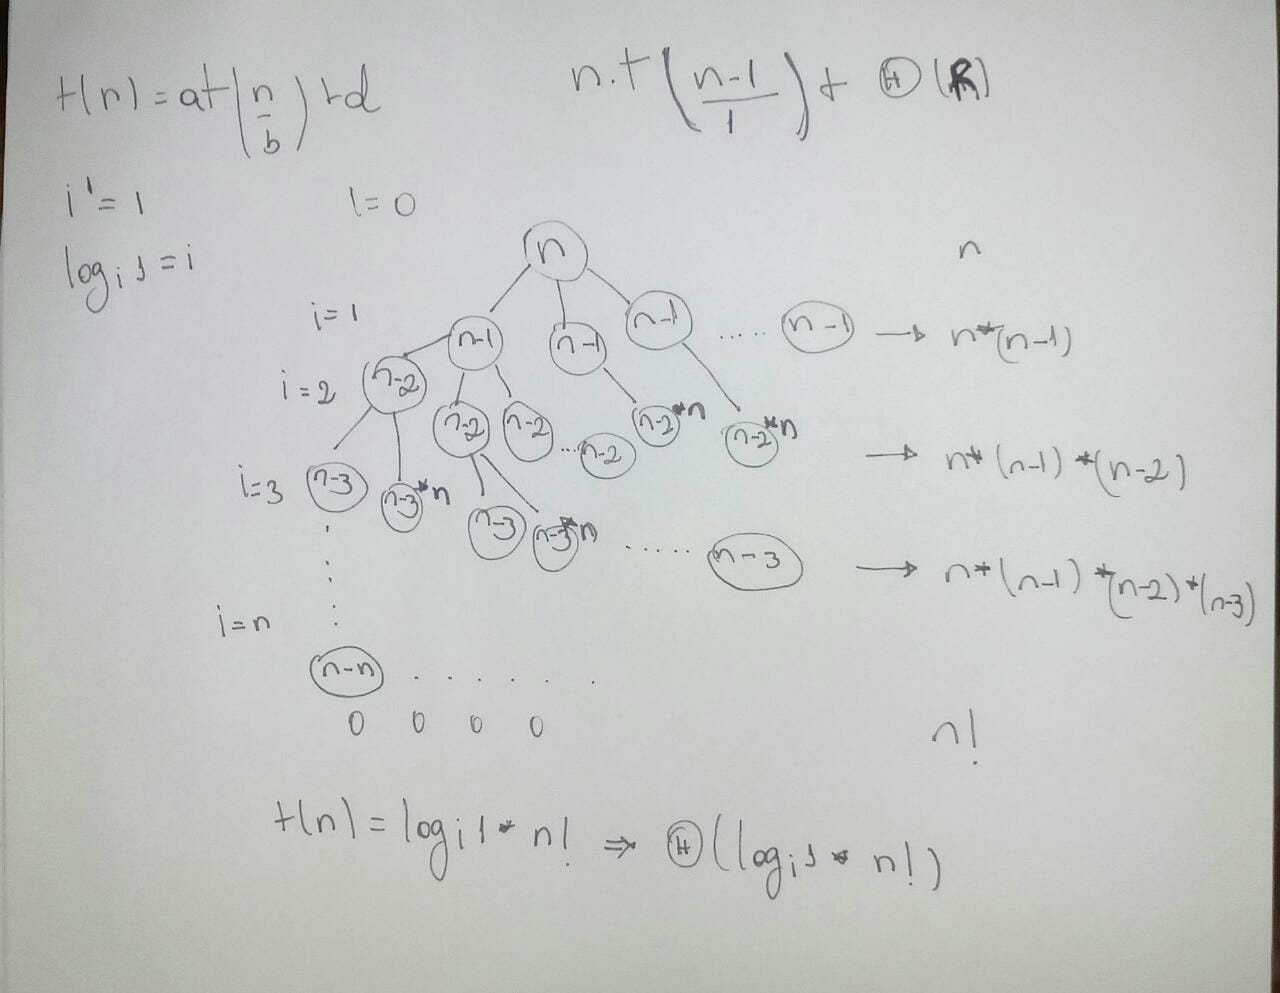 t(n) = at(n/b) + d
n.t((n-1)/1) + Θ(R)
i' = 1
l = 0
log i 1 = i
n
n
i=1
n-1
n-1
n-1
.....
n-1
→ n*(n-1)
i=2
n-2
n-2
n-2
...
n-2
n-2 *n
n-2 *n
→ n*(n-1)*(n-2)
i=3
n-3
n-3 *n
n-3
n-3 *n
.....
n-3
→ n*(n-1)*(n-2)*(n-3)
i=n
n-n
. . . . . .
0 0 0 0
n!
t(n) = log i 1 * n! ⇒ Θ(log i 1 * n!)